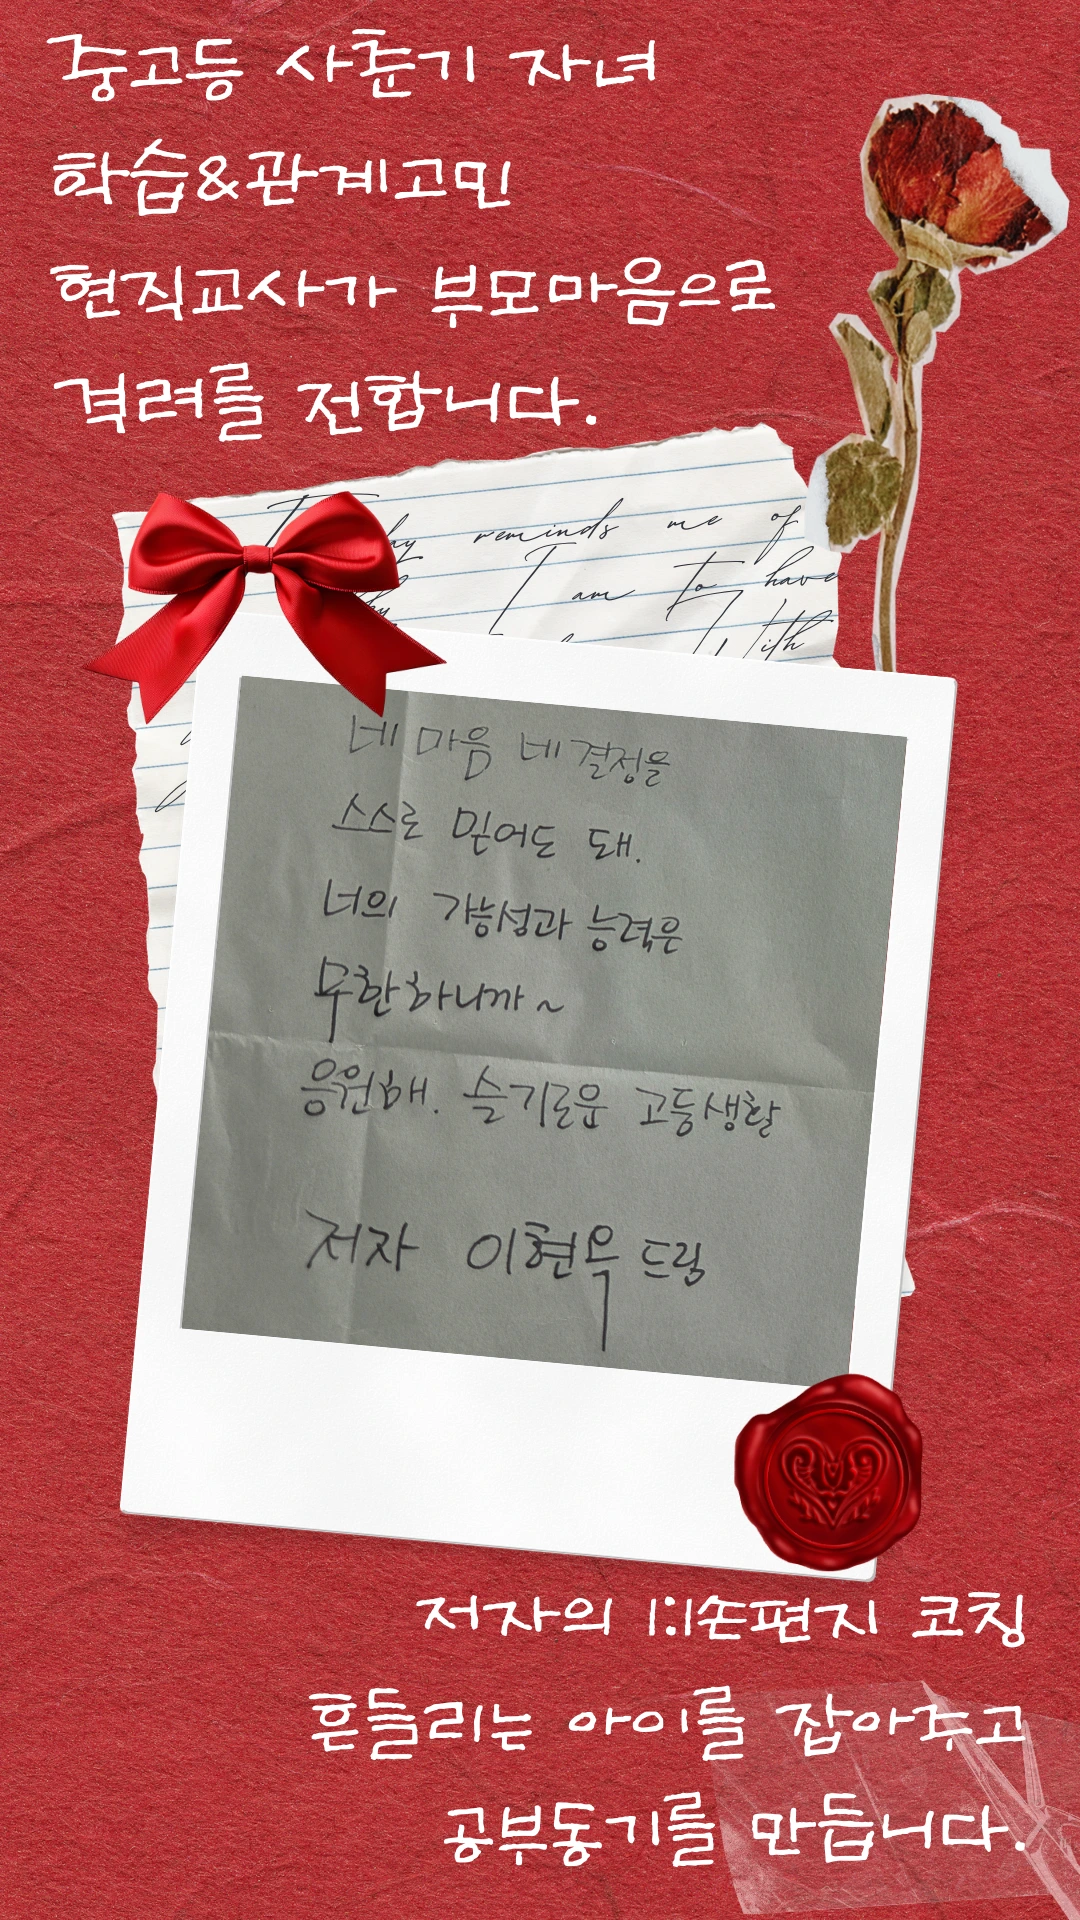 중고등 사춘기 자녀
학습&관계고민
현직교사가 부모마음으로
격려를 전합니다.
reminds me of
I am to have
With
네 마음 네 결정을
스스로 믿어도 돼.
너의 가능성과 능력은
무한하니까~
응원해. 슬기로운 고등생활
저자 이현우 드림
저자의 1:1손편지 코칭
흔들리는 아이를 잡아주고
공부동기를 만듭니다.